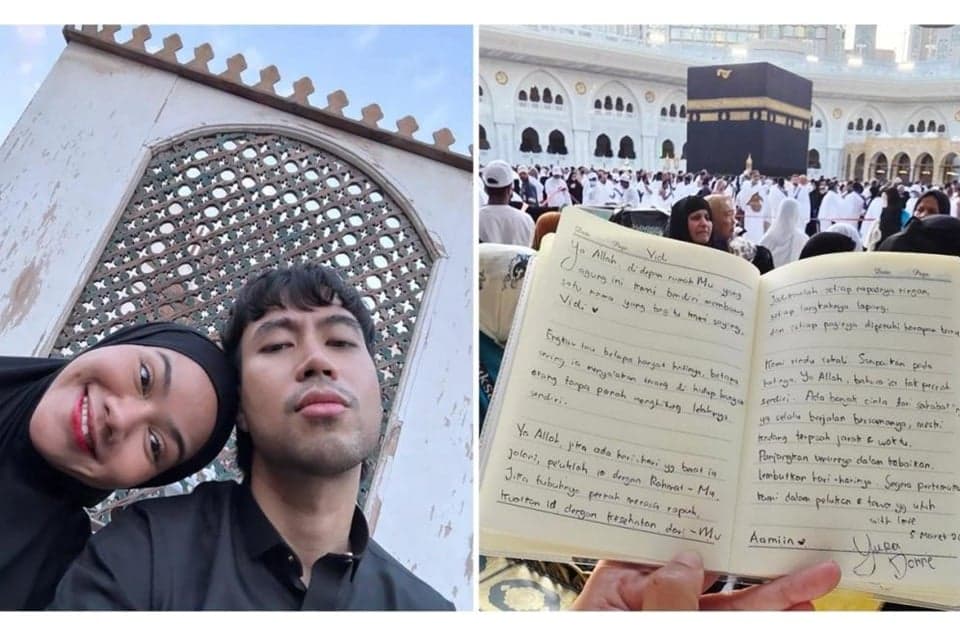 Date Page
Vid
Ya Allah, didepan rumah Mu yang
agung ini kami berdiri membawa
satu nama yang begitu kami sayang,
Vid.
Engkau tau betapa hangat hatinya, betapa
sering ia menyalakan terang di hidup banyak
orang tanpa pernah menghitung lelahnya
sendiri.
Ya Allah, jika ada hari-hari yg berat ia
jalani, peluklah ia dengan Rahmat-Mu.
Jika tubuhnya pernah merasa rapuh,
kuatkan ia dengan kesehatan dari-Mu
Date Page
Jadikanlah setiap napasnya ringan,
setiap langkahnya lapang,
dan setiap paginya dipenuhi harapan
Kami rindu sekali. Sampaikan pada
hatinya, Ya Allah, bahwa ia tak pernah
sendiri. Ada banyak cinta dar sahabat
yg selalu berjalan bersamanya, meski
kadang terpisah jarak & waktu.
Panjangkan umurnya dalam kebaikan.
Lembutkan hari-harinya. Segera
kami dalam pelukan & tawa yg utuh
with love
5 Maret
Aamiin
Yura